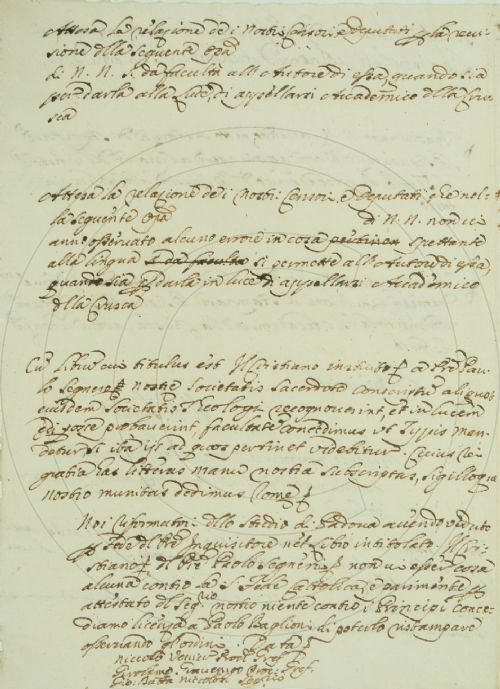 Attesa la relazione dei nostri Censori, e Deputati p la revi-
sione della seguente opa
di N. N. si dà facultà all'Autore di essa, quando sia
p darla alla luce, di appellarsi Accademico della Crus-
sca
Attesa la relazione dei nostri Censori, e Deputati, che nel-
la seguente opa di N. N. non vi
anno osservato alcuno errore in cosa spettante
alla lingua si permette all'Autore di essa,
quando sia p darla in luce di appellarsi Accademico
della Crusca
Cu Librũ cui titulus est Il Cristiano instruito a Pre Pau-
lo Segneri nostre Societatis Sacerdote conscriptũ aliquot
eiusdem Societatis Theologi recognoverint, et in lucem
edi posse probaverint facultate concedimus ut Typis man-
detur, si ita ijs ad quos pertinet videbitur. Cuius rei
gratia has litteras manu nostra subscriptas, sigilloque
nostro munitas dedimus Rome
Noi Riformatori dello Studio di Padova avendo veduto
p Fede del Pre Inquisitore nel libro intitolato Il Cri-
stiano del Pre Paolo Segneri non vi esser cosa
alcuna contro la S. Fede Cattolica, e parimente p
attestato del Segrio nostro niente contro i Principi conce-
diamo licenza a Paolo Baglioni di poterlo ristampare
osservando gl'ordini Data
Niccolò Venier Proc. Ref.
Girolamo Proc. Ref.
Gio: Batta Nicolosi Segrio